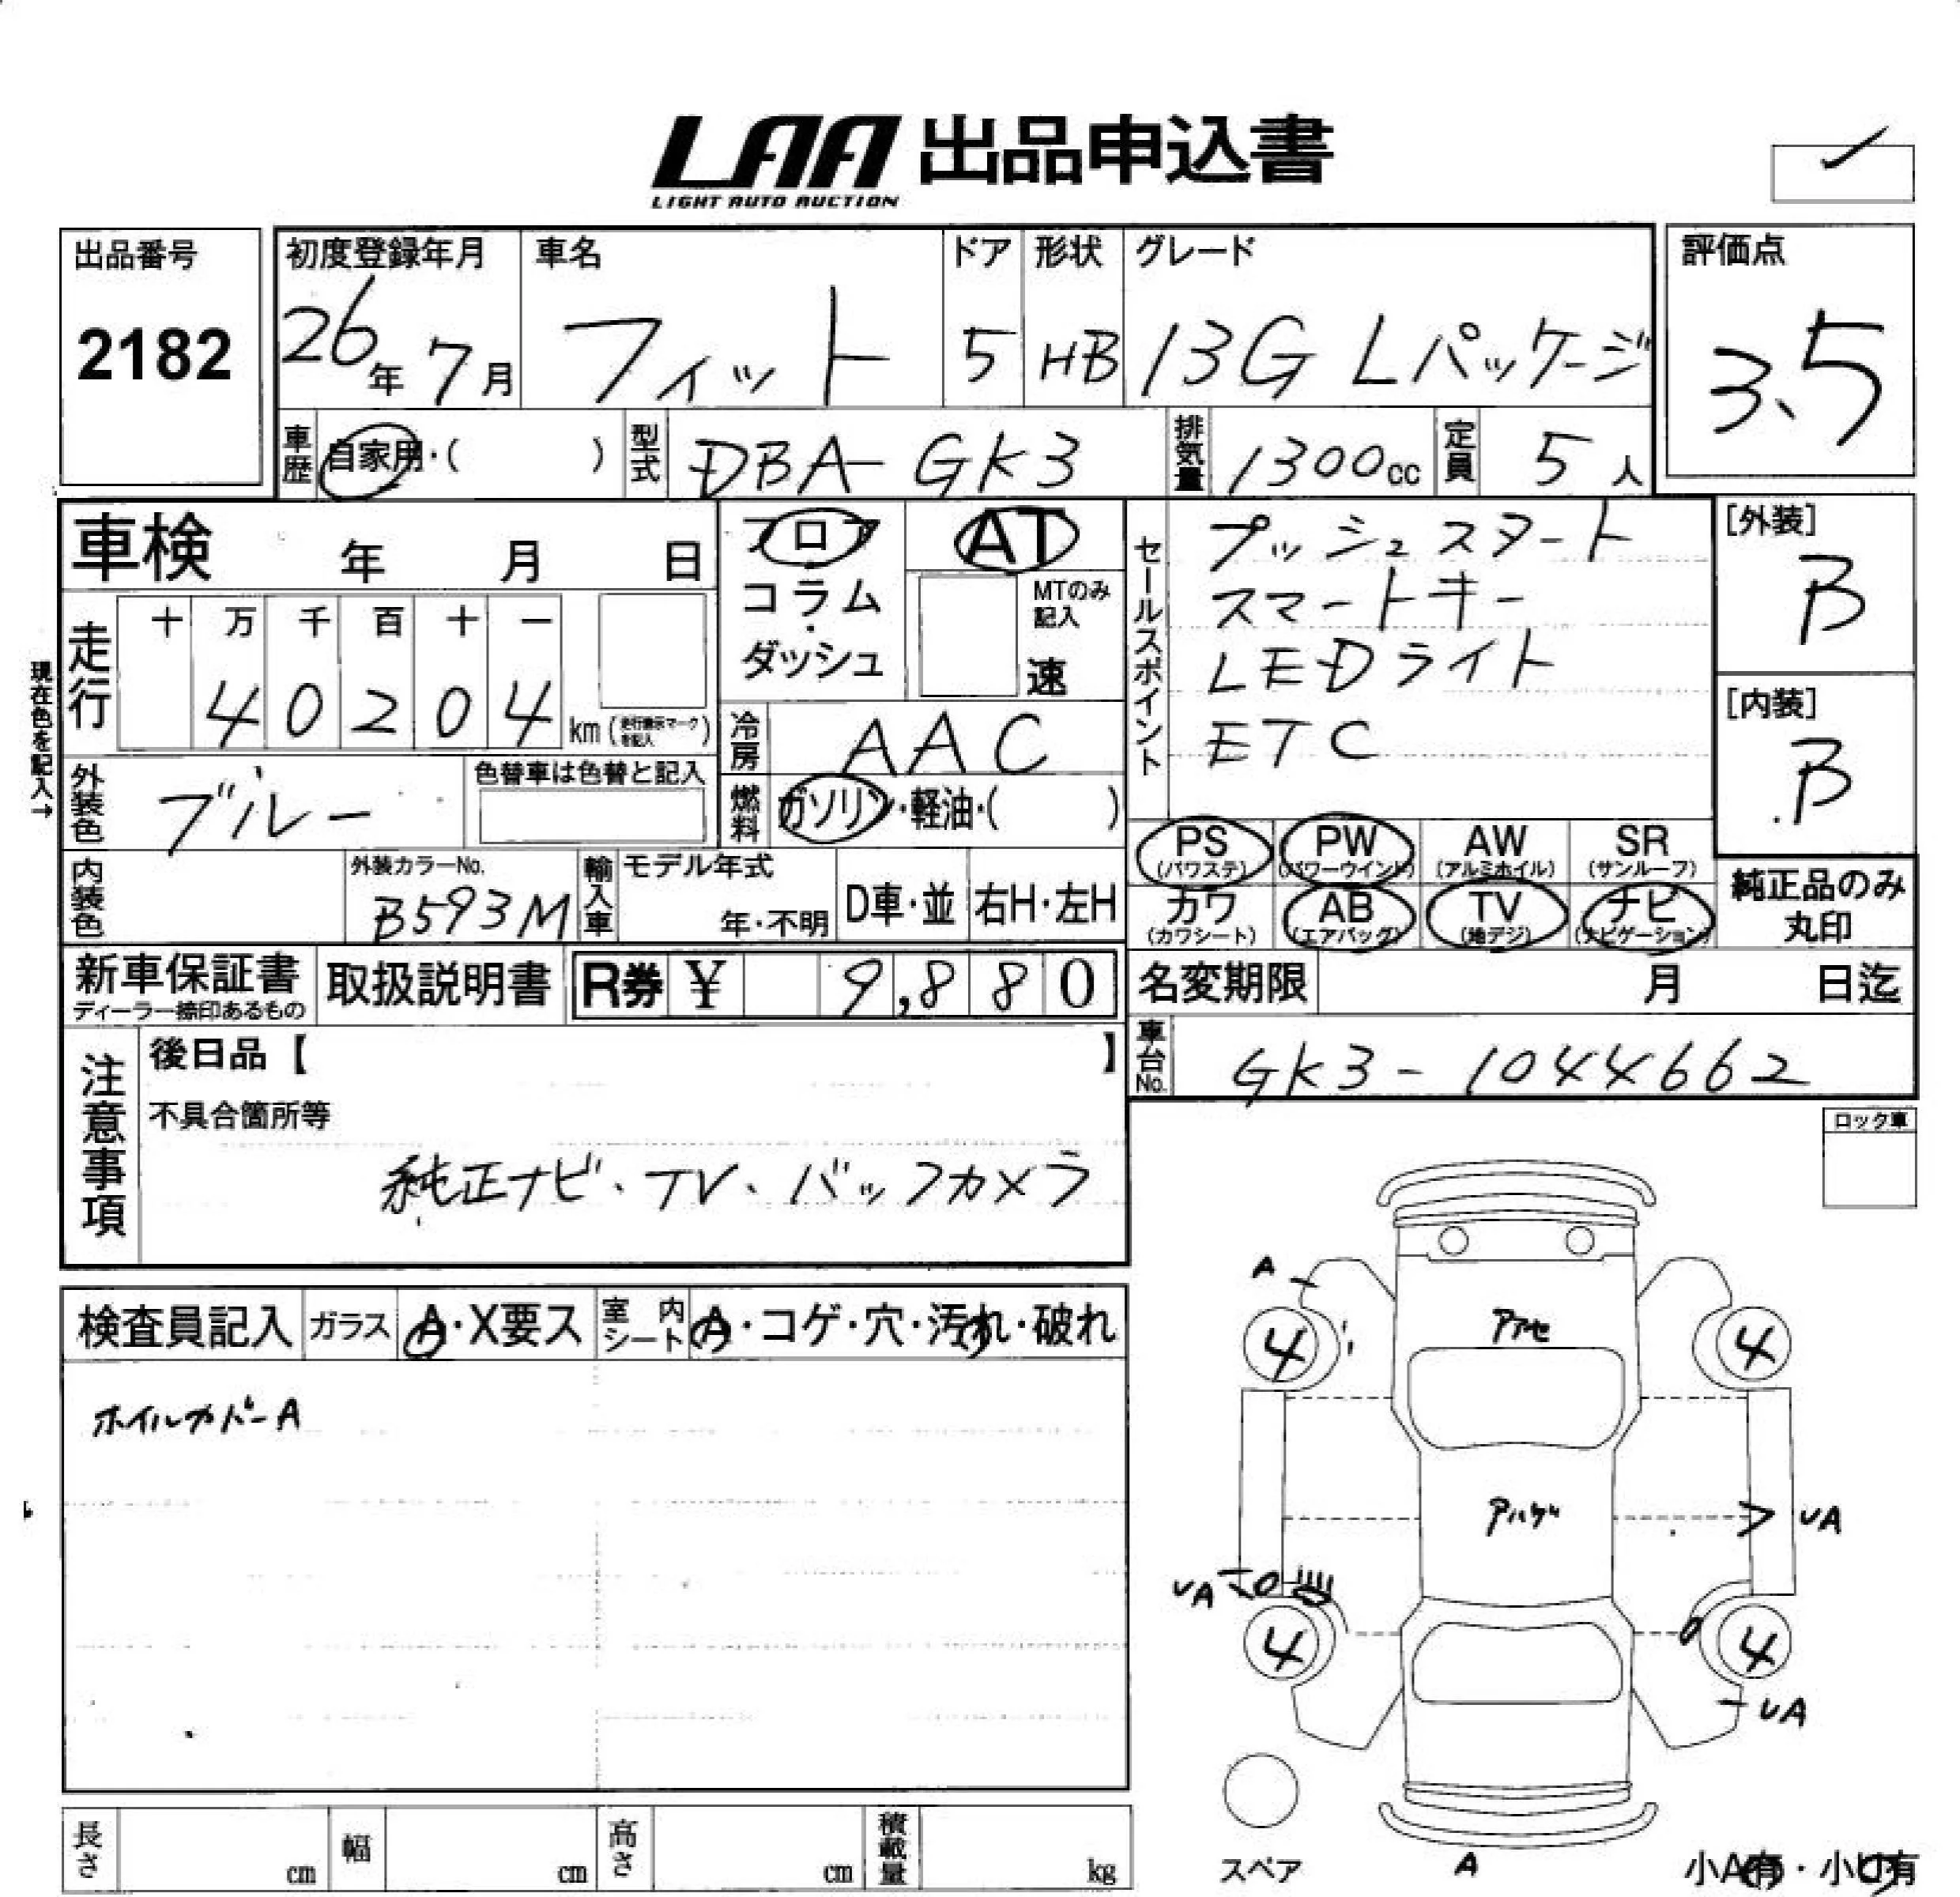 LAA 出品申込書
LIGHT AUTO AUCTION
出品番号
2182
初度登録年月
26年 7月
車名
フィット
ドア
5
形状
HB
グレード
13G Lパッケージ
評価点
3.5
車歴 自家用・( )
型式 DBA-GK3
排気量 1300cc
定員 5人
車検 年 月 日
現在色を記入→
走行
十 万 千 百 十 一
4 0 2 0 4 km
外装色 ブルー
色替車は色替と記入
内装色
外装カラーNo.
B593M
輸入車
モデル年式
年・不明
D車・並
右H・左H
フロア
コラム
・
ダッシュ
AT
MTのみ記入
速
冷房 AAC
燃料 ガソリン・軽油・( )
セールスポイント
プッシュスタート
スマートキー
LEDライト
ETC
[外装]
B
[内装]
B
PS
(パワステ)
PW
(パワーウインド)
AW
(アルミホイル)
SR
(サンルーフ)
カワ
(カワシート)
AB
(エアバッグ)
TV
(地デジ)
ナビ
(ナビゲーション)
純正品のみ
丸印
新車保証書
ディーラー捺印あるもの
取扱説明書
R券 ¥ 9,880
名変期限 月 日迄
車台No. GK3-1044662
注意事項
後日品【 】
不具合箇所等
純正ナビ、TV、バックカメラ
ロック車
検査員記入
ガラス A・X要ス
室内シート A・コゲ・穴・汚れ・破れ
ホイルカバーA
A
4
4
UA
UA
4
4
UA
A
スペア
小A有・小U有
長さ cm
幅 cm
高さ cm
積載量 kg